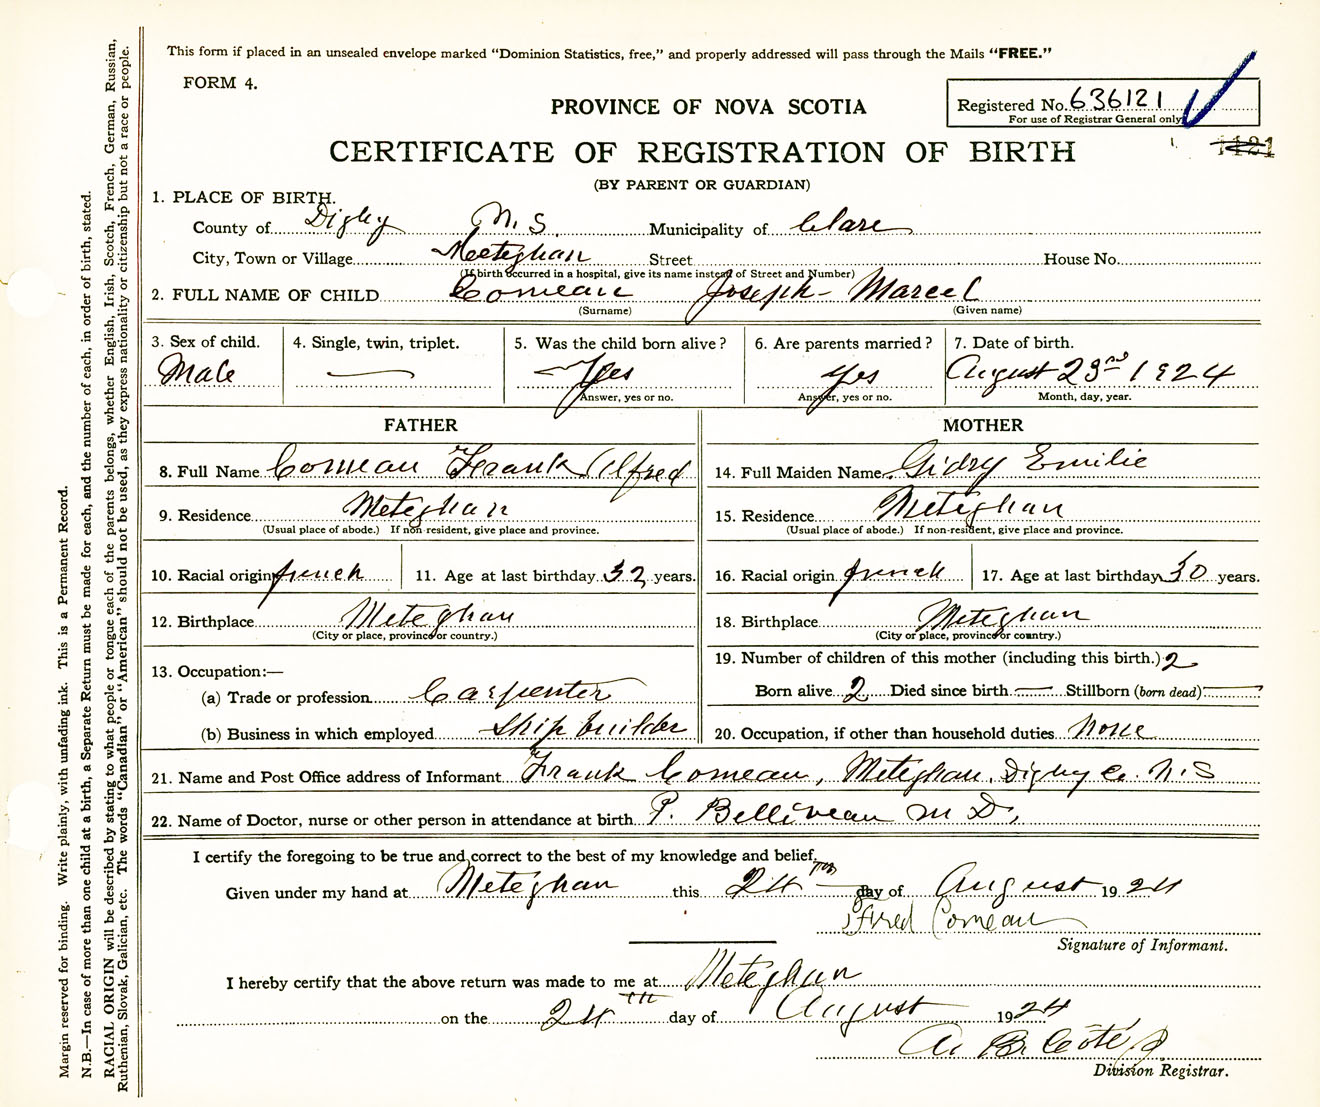 This form if placed in an unsealed envelope marked “Dominion Statistics, free,” and properly addressed will pass through the Mails “FREE.”
FORM 4.
PROVINCE OF NOVA SCOTIA
Registered No. 636121
For use of Registrar General only
1121
CERTIFICATE OF REGISTRATION OF BIRTH
(BY PARENT OR GUARDIAN)
1. PLACE OF BIRTH.
County of Digby N.S. Municipality of Clare
City, Town or Village Meteghan Street House No.
(If birth occurred in a hospital, give its name instead of Street and Number)
2. FULL NAME OF CHILD Comeau Joseph - Marcel
(Surname) (Given name)
3. Sex of child. 4. Single, twin, triplet. 5. Was the child born alive? 6. Are parents married? 7. Date of birth.
Male — Yes yes August 23rd 1924
Answer, yes or no. Answer, yes or no. Month, day, year.
FATHER MOTHER
8. Full Name Comeau Frank Alfred 14. Full Maiden Name Gidry Emilie
9. Residence Meteghan 15. Residence Meteghan
(Usual place of abode.) If non-resident, give place and province. (Usual place of abode.) If non-resident, give place and province.
10. Racial origin french 11. Age at last birthday 32 years. 16. Racial origin french 17. Age at last birthday 30 years.
12. Birthplace Meteghan 18. Birthplace Meteghan
(City or place, province or country.) (City or place, province or country.)
13. Occupation:— 19. Number of children of this mother (including this birth.) 2
(a) Trade or profession Carpenter Born alive 2 Died since birth — Stillborn (born dead) —
(b) Business in which employed Ship builder 20. Occupation, if other than household duties None
21. Name and Post Office address of Informant Frank Comeau, Meteghan, Digby Co. N.S
22. Name of Doctor, nurse or other person in attendance at birth P. Belliveau M D,
I certify the foregoing to be true and correct to the best of my knowledge and belief.
Given under my hand at Meteghan this 24th day of August 1924
Fred Comeau
Signature of Informant.
I hereby certify that the above return was made to me at Meteghan
on the 24th day of August 1924
A. B. Côté
Division Registrar.
Margin reserved for binding. Write plainly, with unfading ink. This is a Permanent Record.
N.B.—In case of more than one child at a birth, a Separate Return must be made for each, and the number of each, in order of birth, stated.
RACIAL ORIGIN will be described by stating to what people or tongue each of the parents belongs, whether English, Irish, Scotch, French, German, Russian,
Ruthenian, Slovak, Galician, etc. The words “Canadian” or “American” should not be used, as they express nationality or citizenship but not a race or people.